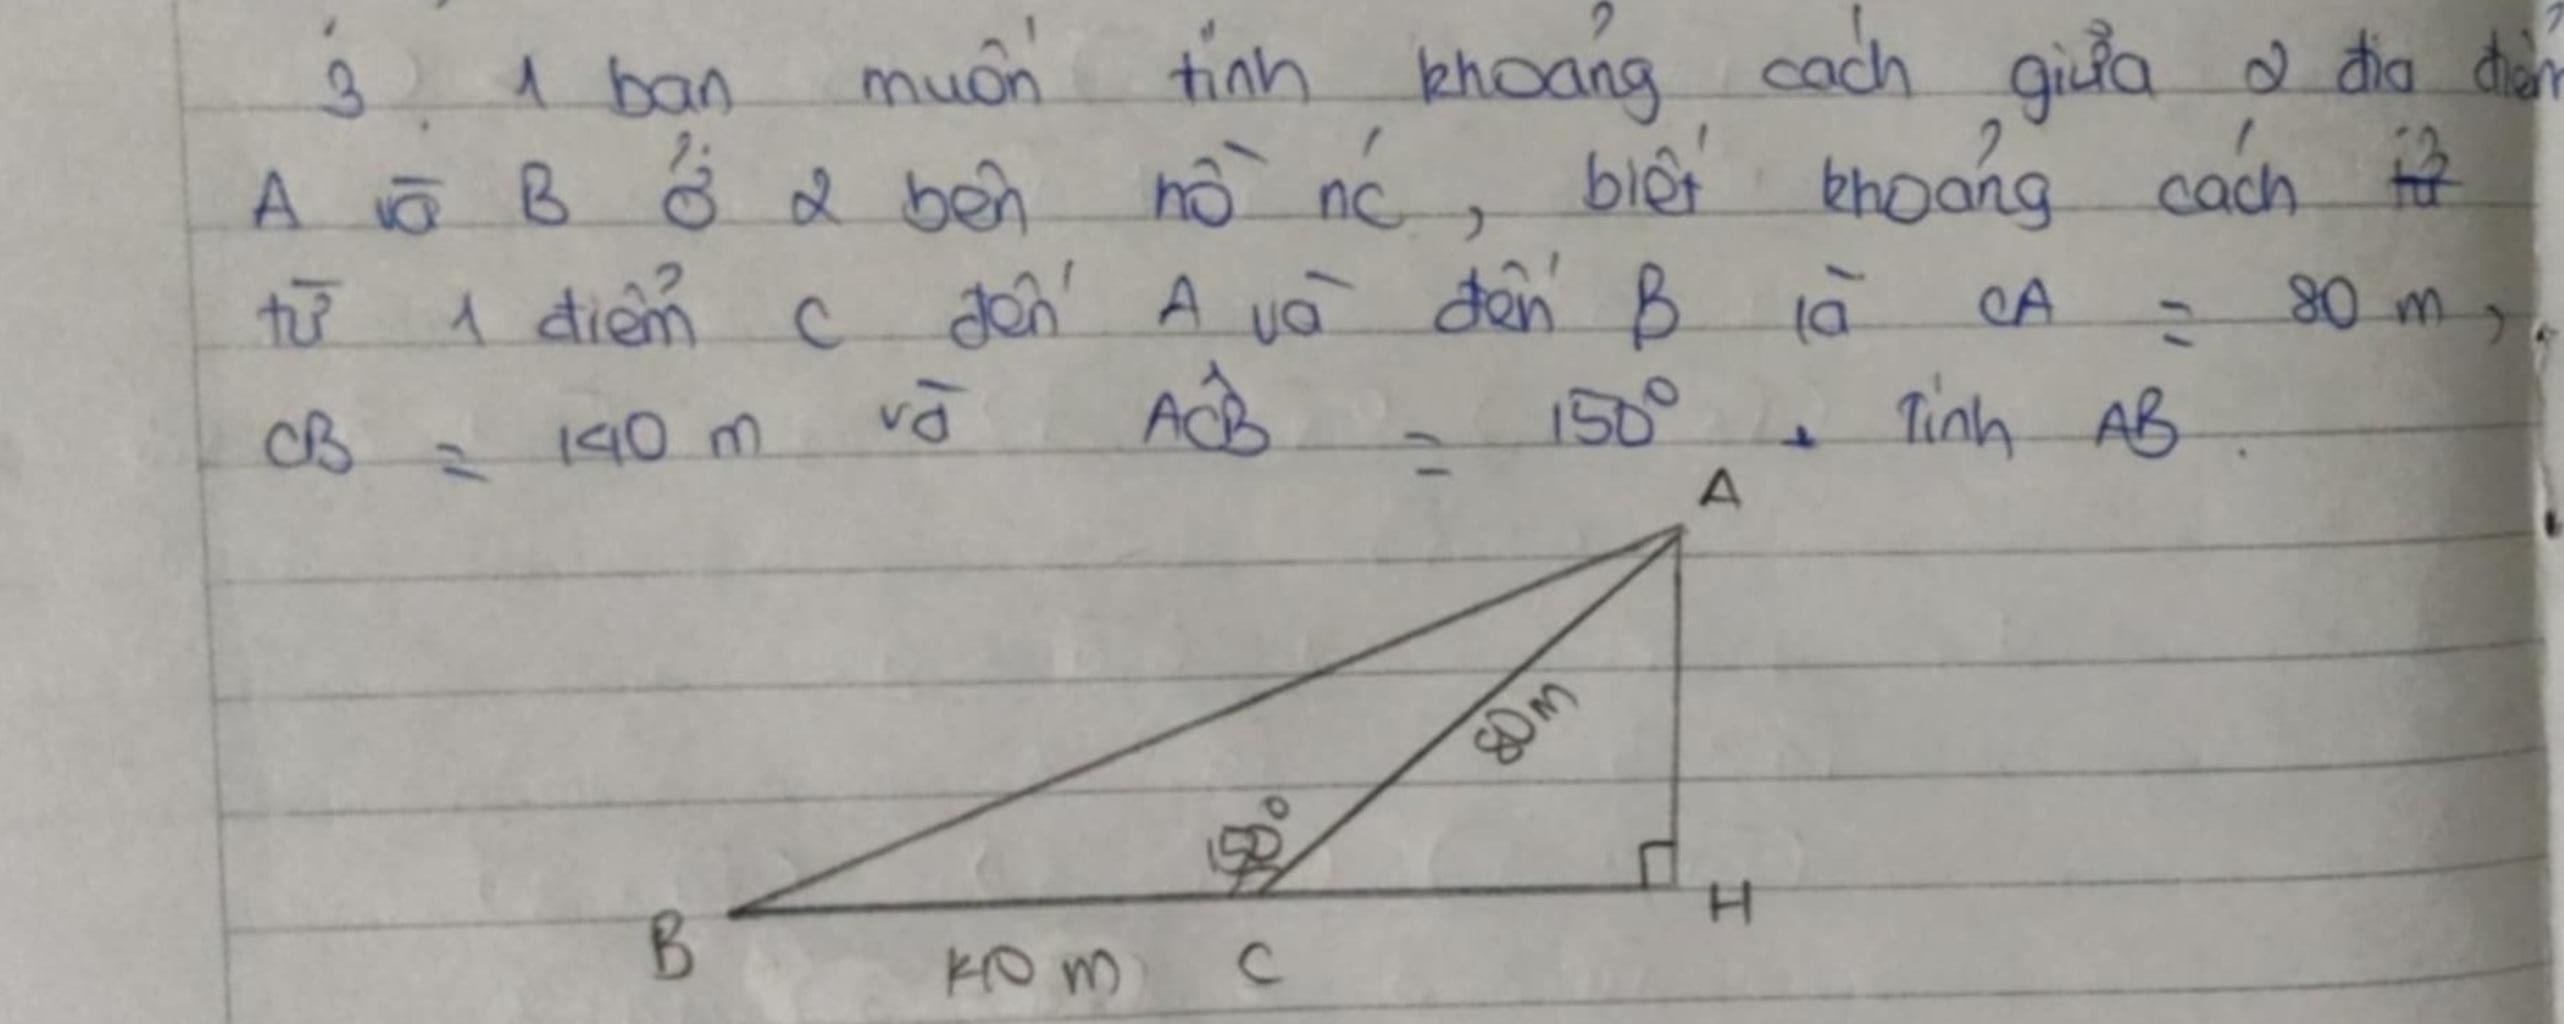 3. 1 bạn muốn tính khoảng cách giữa 2 địa điểm
A và B ở 2 bên hồ nc, biết khoảng cách từ
từ 1 điểm C đến A và đến B là CA = 80 m,
CB = 140 m và ACB = 150° . Tính AB .
A
80 m
150°
B
H
140 m
C